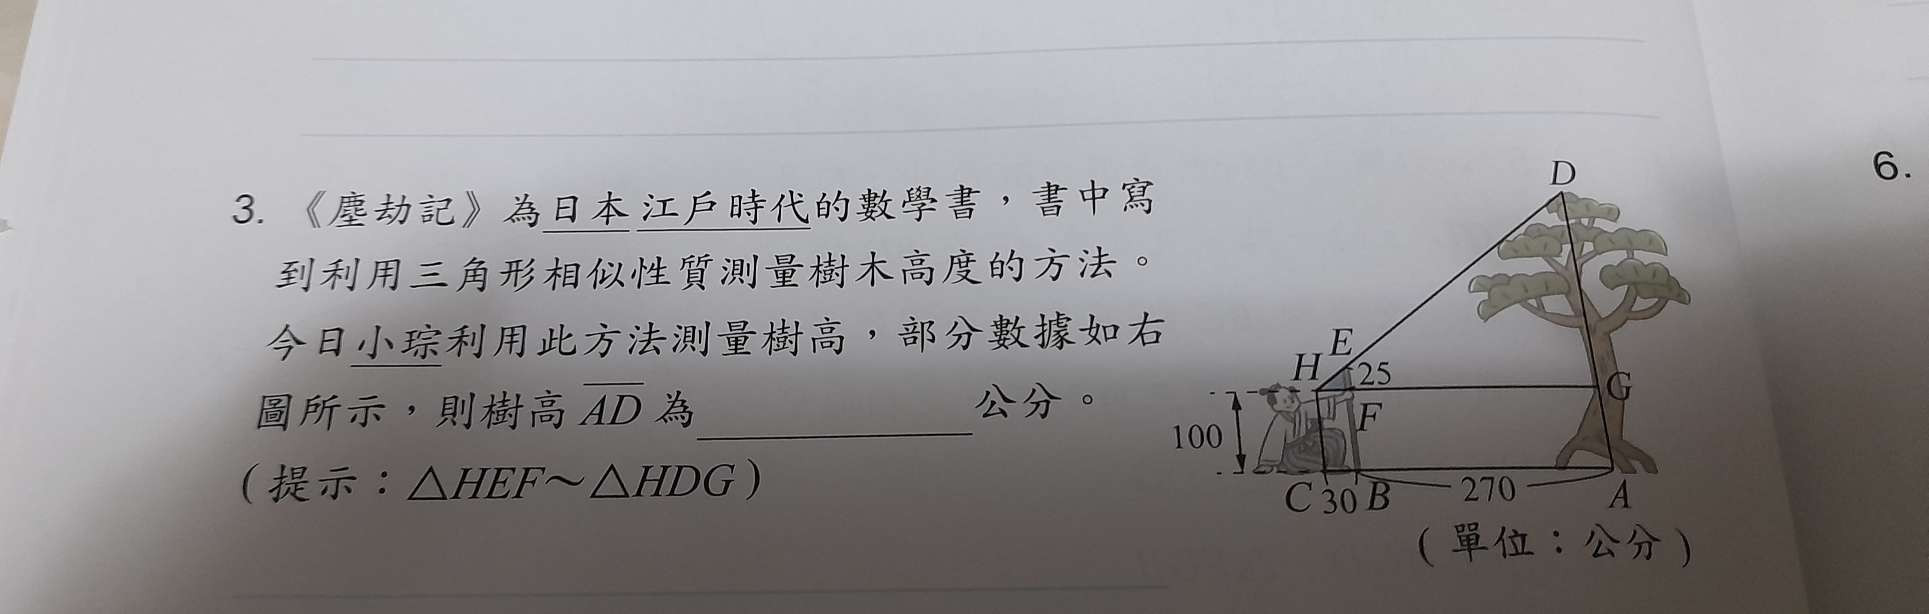 3. 《塵劫記》為日本江戶時代的數學書，書中寫
到利用三角形相似性質測量樹木高度的方法。
今日小琮利用此方法測量樹高，部分數據如右
圖所示，則樹高 AD 為 公分。
(提示：△HEF～△HDG)
D
E
H
25
G
F
100
C 30 B
270
A
(單位：公分)
6.